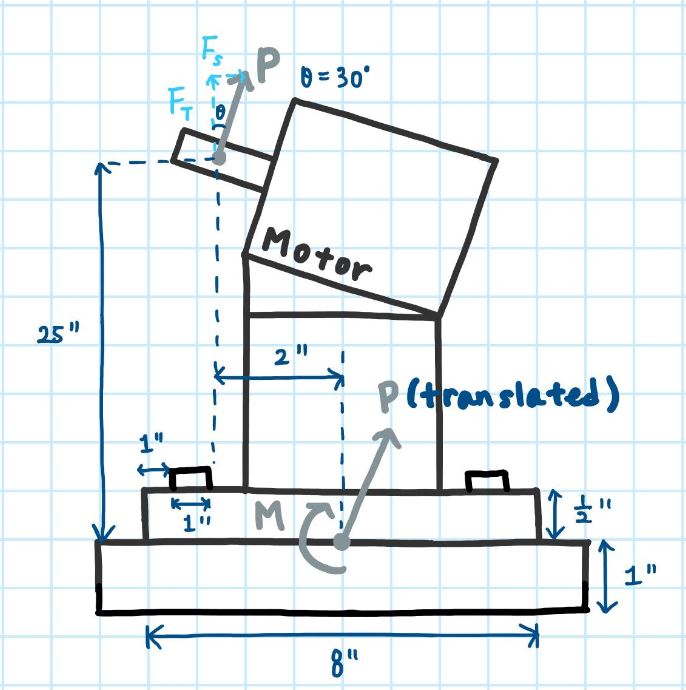 F_S
P
θ = 30°
F_T
θ
Motor
25"
2"
P (translated)
1"
1"
M
1/2"
1"
8"